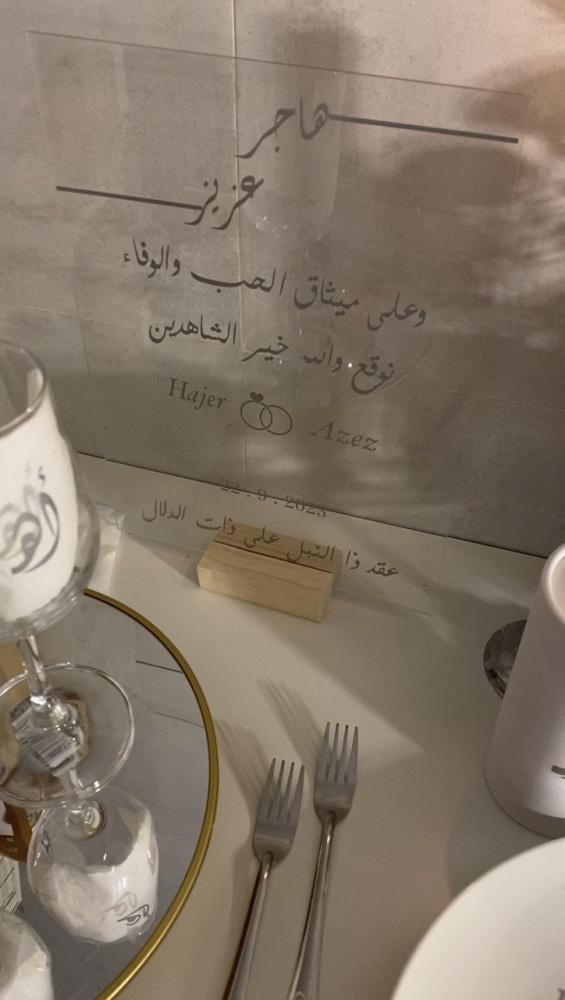 هاجر
عزيز
وعلى ميثاق الحب والوفاء
نوقع والله خير الشاهدين
Hajer Azez
22.9.2023
عقد ذا النبل على ذات الدلال